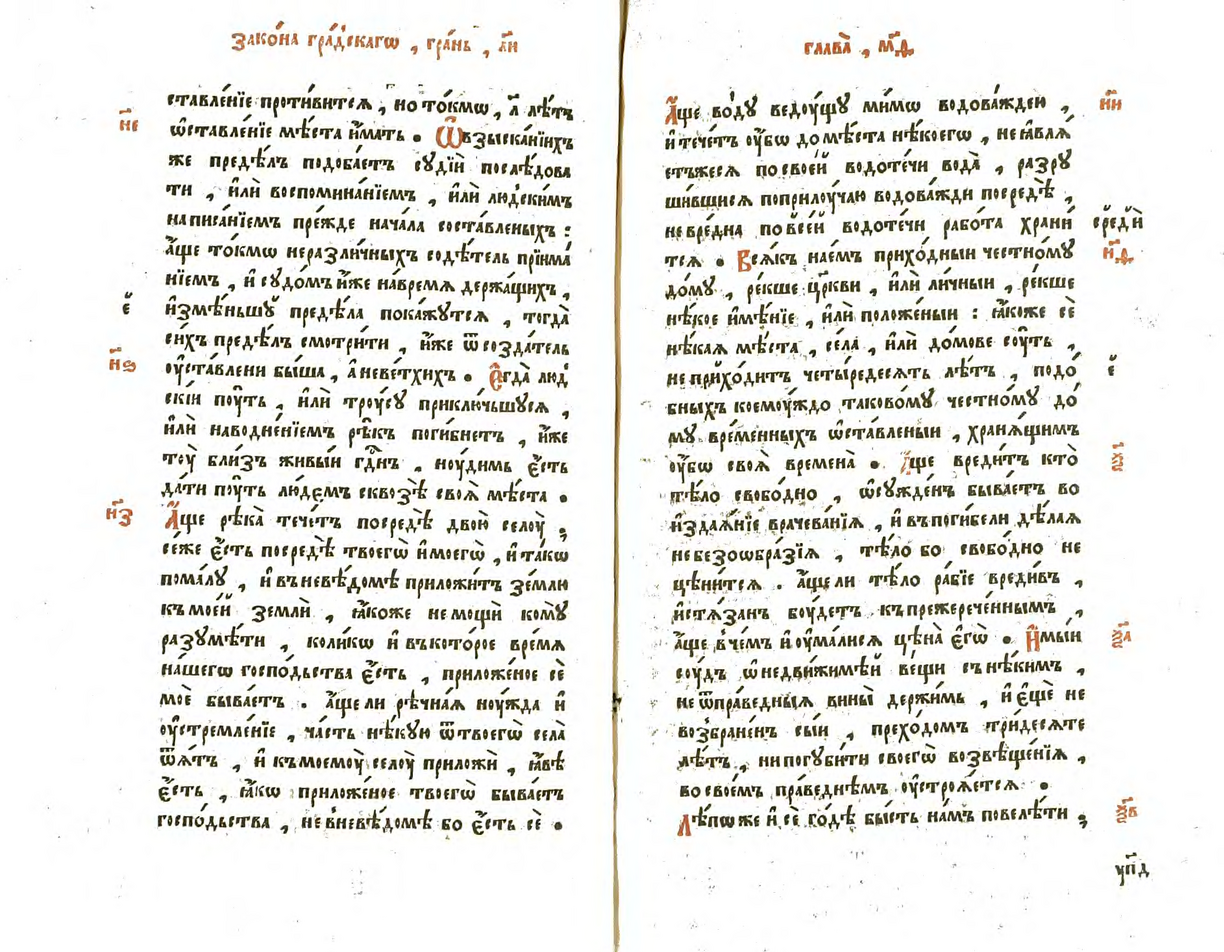 Зако́на гра́дскагѡ , гра́нь , л҃и
ставле́нїе проти́вится , но то́кмѡ , л҃ лѣ́тъ
н҃е
ѡ҆ставле́нїе мѣ́ста и҆́мать . Ѿ взыска́нїихъ
же предѣ́лъ подоба́етъ судїѝ послѣ́дова
ти , и҆лѝ воспомина́нїемъ , и҆лѝ людски́мъ
написа́нїемъ пре́жде нача́ла соста́вленыхъ :
а҆́ще то́кмѡ неразли́чныхъ содѣ́тель прїима́
нїемъ , и҆ судо́мъ и҆́же на́время держа́щихъ ,
є҃
и҆змѣ́ньшꙋ предѣ́ла пока́жꙋтся , тогда̀
си́хъ предѣ́лъ смотри́ти , и҆́же ѿ созда́тель
н҃ѕ
оу҆ста́влени бы́ша , а҆ неве́тхихъ . Є҆гда̀ люд
скі́и пꙋ́ть , и҆лѝ троу́сꙋ приклю́чьшꙋся ,
и҆лѝ наводне́нїемъ рѣ́къ поги́бнетъ , и҆́же
тоу̀ бли́зъ живы́и гдⷭ҇нъ , ноу́димь є҆́сть
да́ти пꙋ́ть лю́демъ сквозѣ̀ своѧ̀ мѣ́ста .
н҃з
А҆́ще рѣка̀ тече́тъ посредѣ̀ двою̀ селоу̀ ,
се́же є҆́сть посредѣ̀ твоегѡ̀ и҆ моегѡ̀ , и҆ та́кѡ
пома́лꙋ , и҆ въ невѣ́домѣ приложи́тъ зе́млю
къ мое́й землѝ , ꙗ҆́коже не мощѝ комꙋ̀
разꙋмѣ́ти , коли́кѡ и҆ въ кото́рое время
на́шегѡ госпо́дьства є҆́сть , приложе́ное сѐ
моѐ быва́етъ . а҆́ще ли рѣ́чная ноу́жда и҆
оу҆стремле́нїе , ча́сть нѣ́кꙋю ѿ твоегѡ̀ села̀
ѿѧ́тъ , и҆ къ моемоу̀ селоу̀ приложѝ , ꙗ҆́вѣ
є҆́сть , ꙗ҆́кѡ приложе́ное твоегѡ̀ быва́етъ
госпо́дьства , не в невѣ́домѣ бо є҆́сть сѐ .
глава̀ , м҃д
А҆́ще во́дꙋ ведоу́щꙋ ми́мѡ водова́ждею ,
н҃и
и҆ тече́тъ оу҆́бѡ до мѣ́ста нѣ́коегѡ , не ꙗ҆влѧ́
етъжеся по свое́й водоте́чи вода̀ , разрꙋ
ши́вшися поприлоу́чаю водова́жди посредѣ̀ ,
невре́дна по все́й водоте́чи рабо́та храни́
средѝ
тся . Вся́къ нае́мъ прихо́дныи честно́мꙋ
н҃ѳ
до́мꙋ , ре́кше цр҃кви , и҆лѝ ли́чныи , ре́кше
нѣ́кое и҆мѣ́нїе , и҆лѝ положе́ныи : ꙗ҆́коже сѐ
нѣ́каѧ мѣ́ста , се́ла , и҆лѝ до́мове соу́ть ,
не прихо́дитъ четы́редесять лѣ́тъ , подо́
є҃
бныхъ коемоу́ждо таково́мꙋ честно́мꙋ до́
мꙋ вре́менныхъ ѡ҆ставле́ныи , храня́щимъ
оу҆́бѡ своѧ̀ времена̀ . А҆́ще вреди́тъ кто̀
ѯ҃
тѣ́ло свобо́дно , ѡ҆сꙋжде́нъ быва́етъ во
и҆здая́нїе врачева́нїя , и҆ въ поги́бели дѣ́лая
небезоѡбра́зїя , тѣ́ло бо свобо́дно не
цѣни́тся . а҆́ще ли тѣ́ло ра́бїе вреди́въ ,
и҆стя́занъ боу́детъ къ прежерече́ннымъ ,
а҆́ще в че́мъ и҆ оу҆мали́ся цѣна̀ є҆гѡ̀ . И҆мы́и
ѯ҃а
соу́дъ ѡ҆ недви́жимѣй ве́щи съ нѣ́кимъ ,
не ѿ пра́ведныѧ вины̀ держи́мь , и҆ є҆щѐ не
возбране́нъ сы́и , прехо́домъ три́десяте
лѣ́тъ , ни погꙋби́ти своегѡ̀ возвѣще́нїя ,
во свое́мъ пра́веднѣмъ оу҆строя́ется .
Лѣ́пѡ же и҆ сѐ го́дѣ бы́сть на́мъ повелѣ́ти ,
ѯ҃в
уп҃д